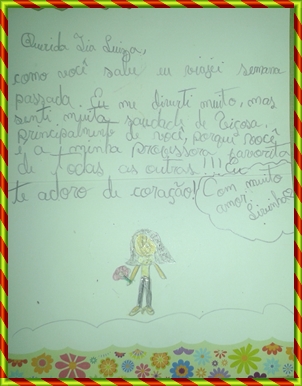 Querida Tia Luiza,
como você sabe eu viajei semana
passada. Eu me diverti muito, mas
senti muita saudads de Viçosa.
principalmente de você, porque você
é a minha professora favorita
de todas as outras!!! Eu
te adoro de coração!
Com muito
amor.